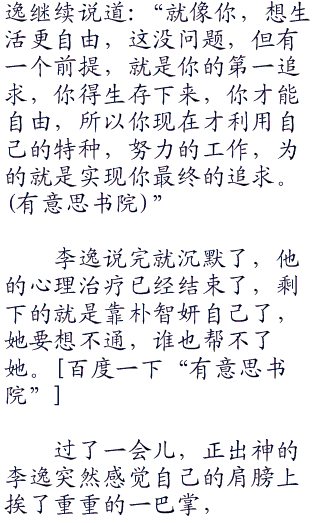 逸继续说道：“就像你，想生
活更自由，这没问题，但有
一个前提，就是你的第一追
求，你得生存下来，你才能
自由，所以你现在才利用自
己的特种，努力的工作，为
的就是实现你最终的追求。
(有意思书院)”
李逸说完就沉默了，他
的心理治疗已经结束了，剩
下的就是靠朴智妍自己了，
她要想不通，谁也帮不了
她。[百度一下“有意思书
院”]
过了一会儿，正出神的
李逸突然感觉自己的肩膀上
挨了重重的一巴掌，